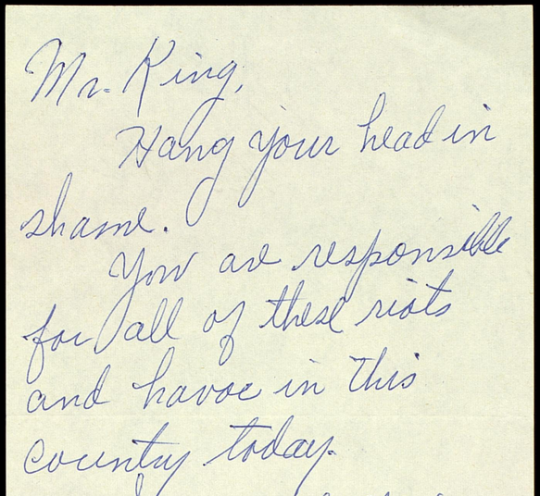 Mr. King,
Hang your head in
shame.
You are responsible
for all of these riots
and havoc in this
country today.